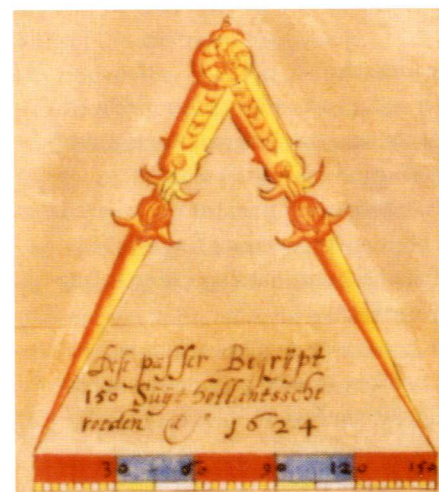 dese passer Begrÿpt
150 Suÿt hollantssche
roeden Aº 1624
30 60 90 120 150